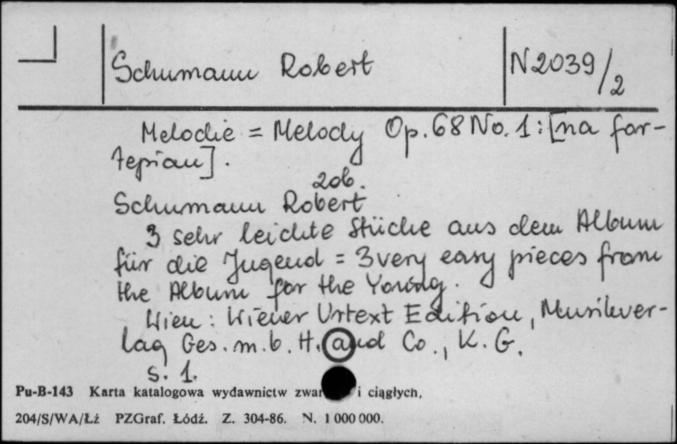 Schumann Robert N2039/2
Melodie = Melody Op. 68 No. 1 : [na for-
tepian].
zob.
Schumann Robert
3 sehr leichte Stücke aus dem Album
für die Jugend = 3 very easy pieces from
the Album for the Young.
Wien : Wiener Urtext Edition, Musikver-
lag Ges. m. b. H. and Co., K. G.
s. 1.
Pu-B-143 Karta katalogowa wydawnictw i ciągłych,
204/S/WA/Łź PZGraf. Łódź. Z. 304-86. N. 1 000 000.